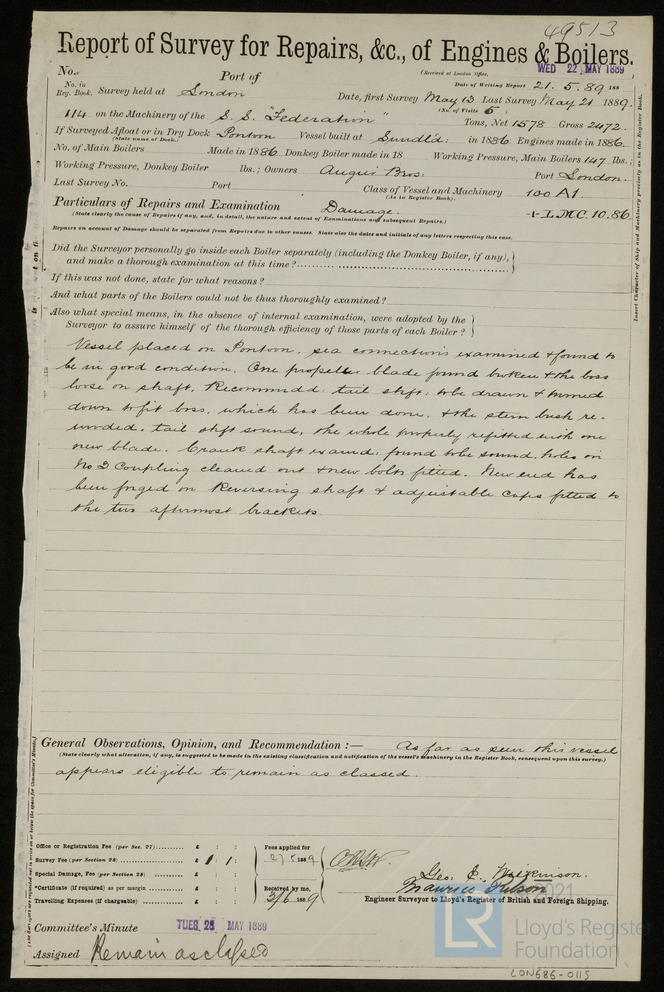 49513
Report of Survey for Repairs, &c., of Engines & Boilers.
(Received at London Office, WED 22 MAY 1889
No. Port of
No. in Reg. Book. Survey held at London Date of Writing Report 21.5.89 188
Date, first Survey May 13 Last Survey May 21 1889.
(No. of Visits 5
114 on the Machinery of the S.S. "Federation" Tons, Net 1578 Gross 2472.
If Surveyed Afloat or in Dry Dock Pontoon Vessel built at Sundld: in 1886 Engines made in 1886.
(State name of Dock.)
No. of Main Boilers Made in 1886 Donkey Boiler made in 18 Working Pressure, Main Boilers 147 lbs.;
Working Pressure, Donkey Boiler lbs.; Owners Angus Bros: Port London.
Last Survey No. Port Class of Vessel and Machinery 100 A1.
(As in Register Book).
Particulars of Repairs and Examination Damage. + L.M.C. 10.86
(State clearly the cause of Repairs if any, and, in detail, the nature and extent of Examinations and subsequent Repairs.)
Repairs on account of Damage should be separated from Repairs due to other causes. State also the dates and initials of any letters respecting this case.
Did the Surveyor personally go inside each Boiler separately (including the Donkey Boiler, if any),
and make a thorough examination at this time?
If this was not done, state for what reasons?
And what parts of the Boilers could not be thus thoroughly examined?
Also what special means, in the absence of internal examination, were adopted by the
Surveyor to assure himself of the thorough efficiency of those parts of each Boiler?
Vessel placed on Pontoon, sea connections examined & found to
be in good condition. One propeller blade found broken & the boss
loose on shaft. Recommd: tail shft: to be drawn & turned
down to fit boss, which has been done, & the stern bush re-
wooded. tail shft sound, the whole properly refitted with one
new blade. Crank shaft examd. found to be sound, holes in
No 2 Coupling cleaned out & new bolts fitted. New end has
been forged on Reversing shaft & adjustable caps fitted to
the two aftermost brackets.
General Observations, Opinion, and Recommendation:— As far as seen this vessel
(State clearly what alteration, if any, is suggested to be made in the existing classification and notification of the vessel's machinery in the Register Book, consequent upon this survey.)
appears eligible to remain as classed.
Office or Registration Fee (per Sec. 27) £ : :
Survey Fee (per Section 28) £ 1 : 1 :
Special Damage, Fee (per Section 28) £ : :
*Certificate (if required) as per margin £ : :
Travelling Expenses (if chargeable) £ : :
Fees applied for
21/5 1889
Received by me,
3/6 1889
Geo. E. Wilkinson.
Maurice
Engineer Surveyor to Lloyd's Register of British and Foreign Shipping.
Committee's Minute TUES 28 MAY 1889
Assigned Remain as classed
2021
LR
Lloyd's Register
Foundation
LON686-0115
Insert Character of Ship and Machinery precisely as in the Register Book.